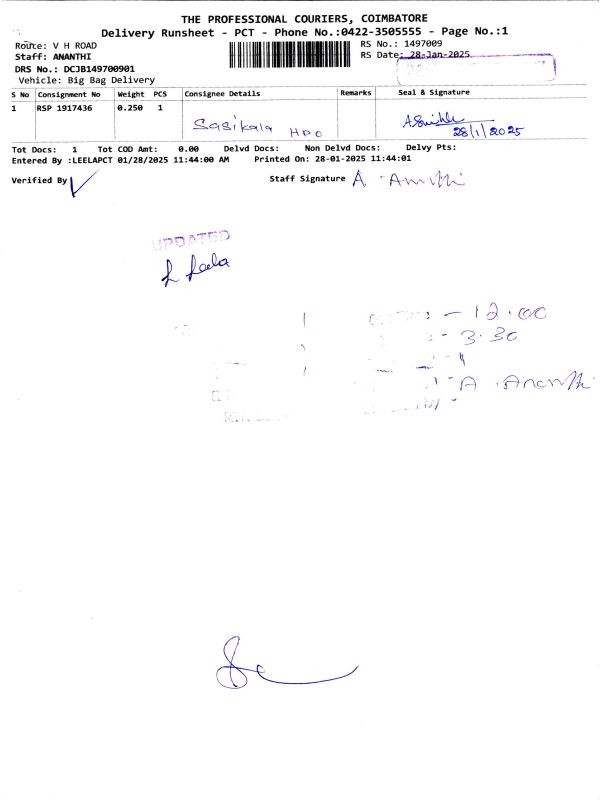 THE PROFESSIONAL COURIERS, COIMBATORE
Delivery Runsheet - PCT - Phone No.:0422-3505555 - Page No.:1
Route: V H ROAD
RS No.: 1497009
Staff: ANANTHI
RS Date: 28-Jan-2025
DRS No.: DCJB149700901
Vehicle: Big Bag Delivery
S No Consignment No Weight PCS Consignee Details Remarks Seal & Signature
1 RSP 1917436 0.250 1
Sasikala HPO
28/1/2025
Tot Docs: 1 Tot COD Amt: 0.00 Delvd Docs: Non Delvd Docs: Delvy Pts:
Entered By :LEELAPCT 01/28/2025 11:44:00 AM Printed On: 28-01-2025 11:44:01
Verified By
Staff Signature A. Ananthi
UPDATED
- 12.00
- 3.30
A. Ananthi